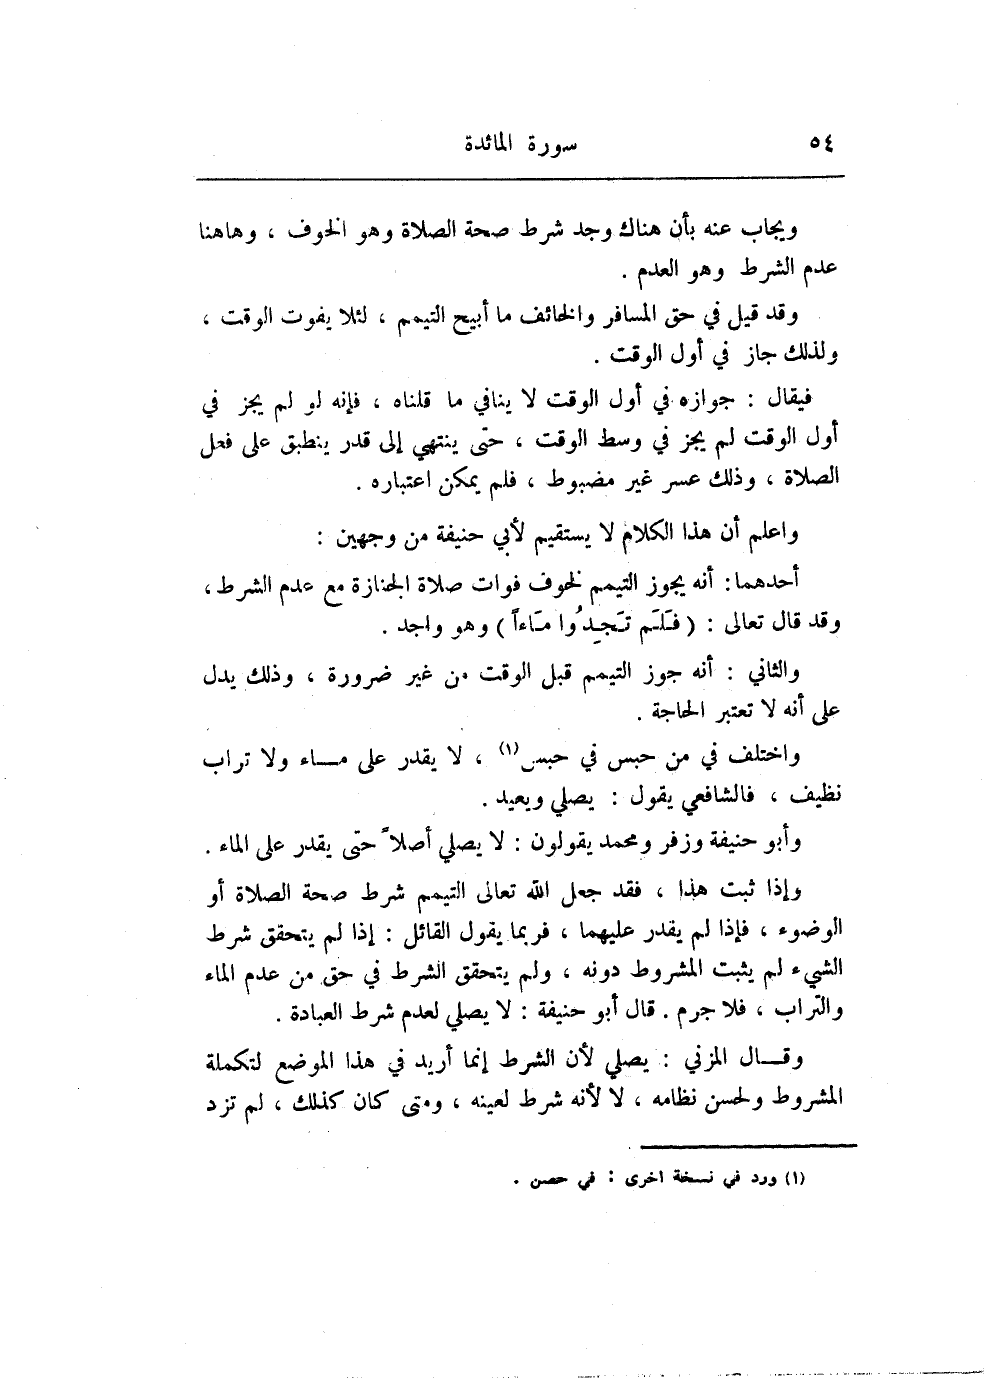 ٥٤
سورة المائدة
ويجاب عنه بأن هناك وجد شرط صحة الصلاة وهو الخوف ، وهاهنا
عدم الشرط وهو العدم .
وقد قيل في حق المسافر والخائف ما أبيح التيمم ، لئلا يفوت الوقت ،
ولذلك جاز في أول الوقت .
فيقال : جوازه في أول الوقت لا ينافي ما قلناه ، فإنه لو لم يجز في
أول الوقت لم يجز في وسط الوقت ، حتى ينتهي إلى قدر ينطبق على فعل
الصلاة ، وذلك عسر غير مضبوط ، فلم يمكن اعتباره .
واعلم أن هذا الكلام لا يستقيم لأبي حنيفة من وجهين :
أحدهما : أنه يجوز التيمم لخوف فوات صلاة الجنازة مع عدم الشرط ،
وقد قال تعالى : ( فَلَم تَجِدُوا مَاءاً ) وهو واجد .
والثاني : أنه جوز التيمم قبل الوقت من غير ضرورة ، وذلك يدل
على أنه لا تعتبر الحاجة .
واختلف في من حبس في حبس(١) ، لا يقدر على مـاء ولا تراب
نظيف ، فالشافعي يقول : يصلي ويعيد .
وأبو حنيفة وزفر ومحمد يقولون : لا يصلي أصلاً حتى يقدر على الماء .
وإذا ثبت هذا ، فقد جعل الله تعالى التيمم شرط صحة الصلاة أو
الوضوء ، فإذا لم يقدر عليهما ، فربما يقول القائل : إذا لم يتحقق شرط
الشيء لم يثبت المشروط دونه ، ولم يتحقق الشرط في حق من عدم الماء
والتراب ، فلا جرم . قال أبو حنيفة : لا يصلي لعدم شرط العبادة .
وقـال المزني : يصلي لأن الشرط إنما أريد في هذا الموضع لتكملة
المشروط ولحسن نظامه ، لا لأنه شرط لعينه ، ومتى كان كذلك ، لم تزد
(١) ورد في نسخة اخرى : في حصن .